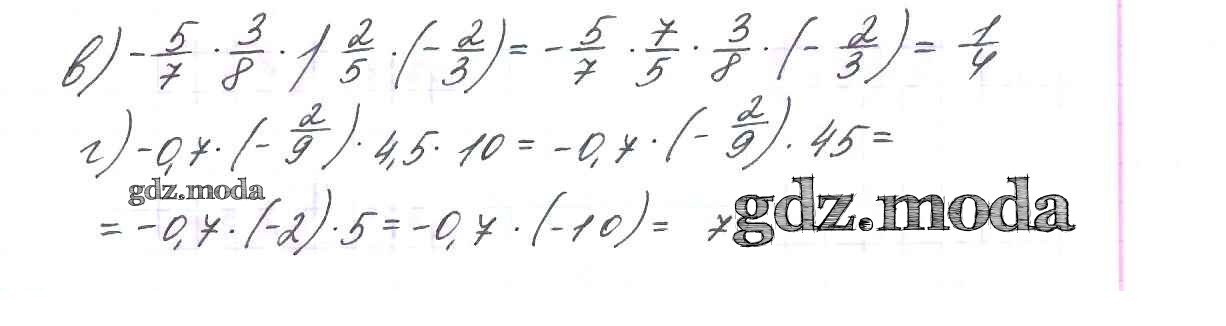 в) -5/7 · 3/8 · 1 2/5 · (-2/3) = -5/7 · 7/5 · 3/8 · (-2/3) = 1/4
г) -0,7 · (-2/9) · 4,5 · 10 = -0,7 · (-2/9) · 45 =
gdz.moda
= -0,7 · (-2) · 5 = -0,7 · (-10) = 7
gdz.moda